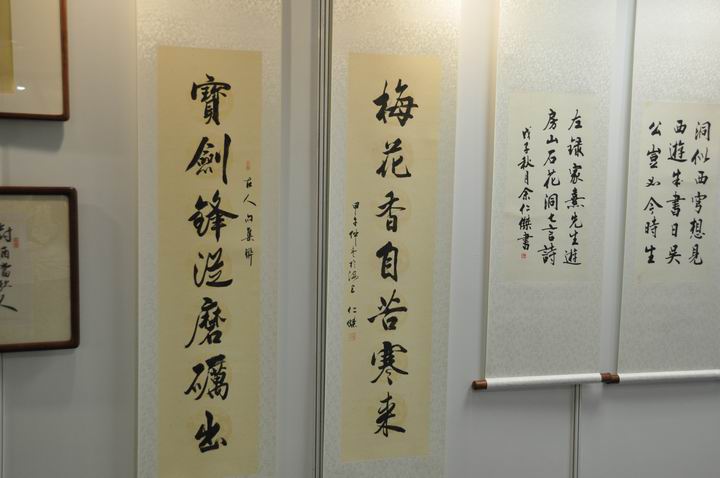 洞似西想見
西遊朱書日吳
公豈今時生
左錄家熹先生遊
房山石花洞七言詩
戊子秋月余仁傑書
梅花香自苦寒来
甲午仲冬於滬上 仁傑
古人句集聯
寶劍鋒從磨礪出